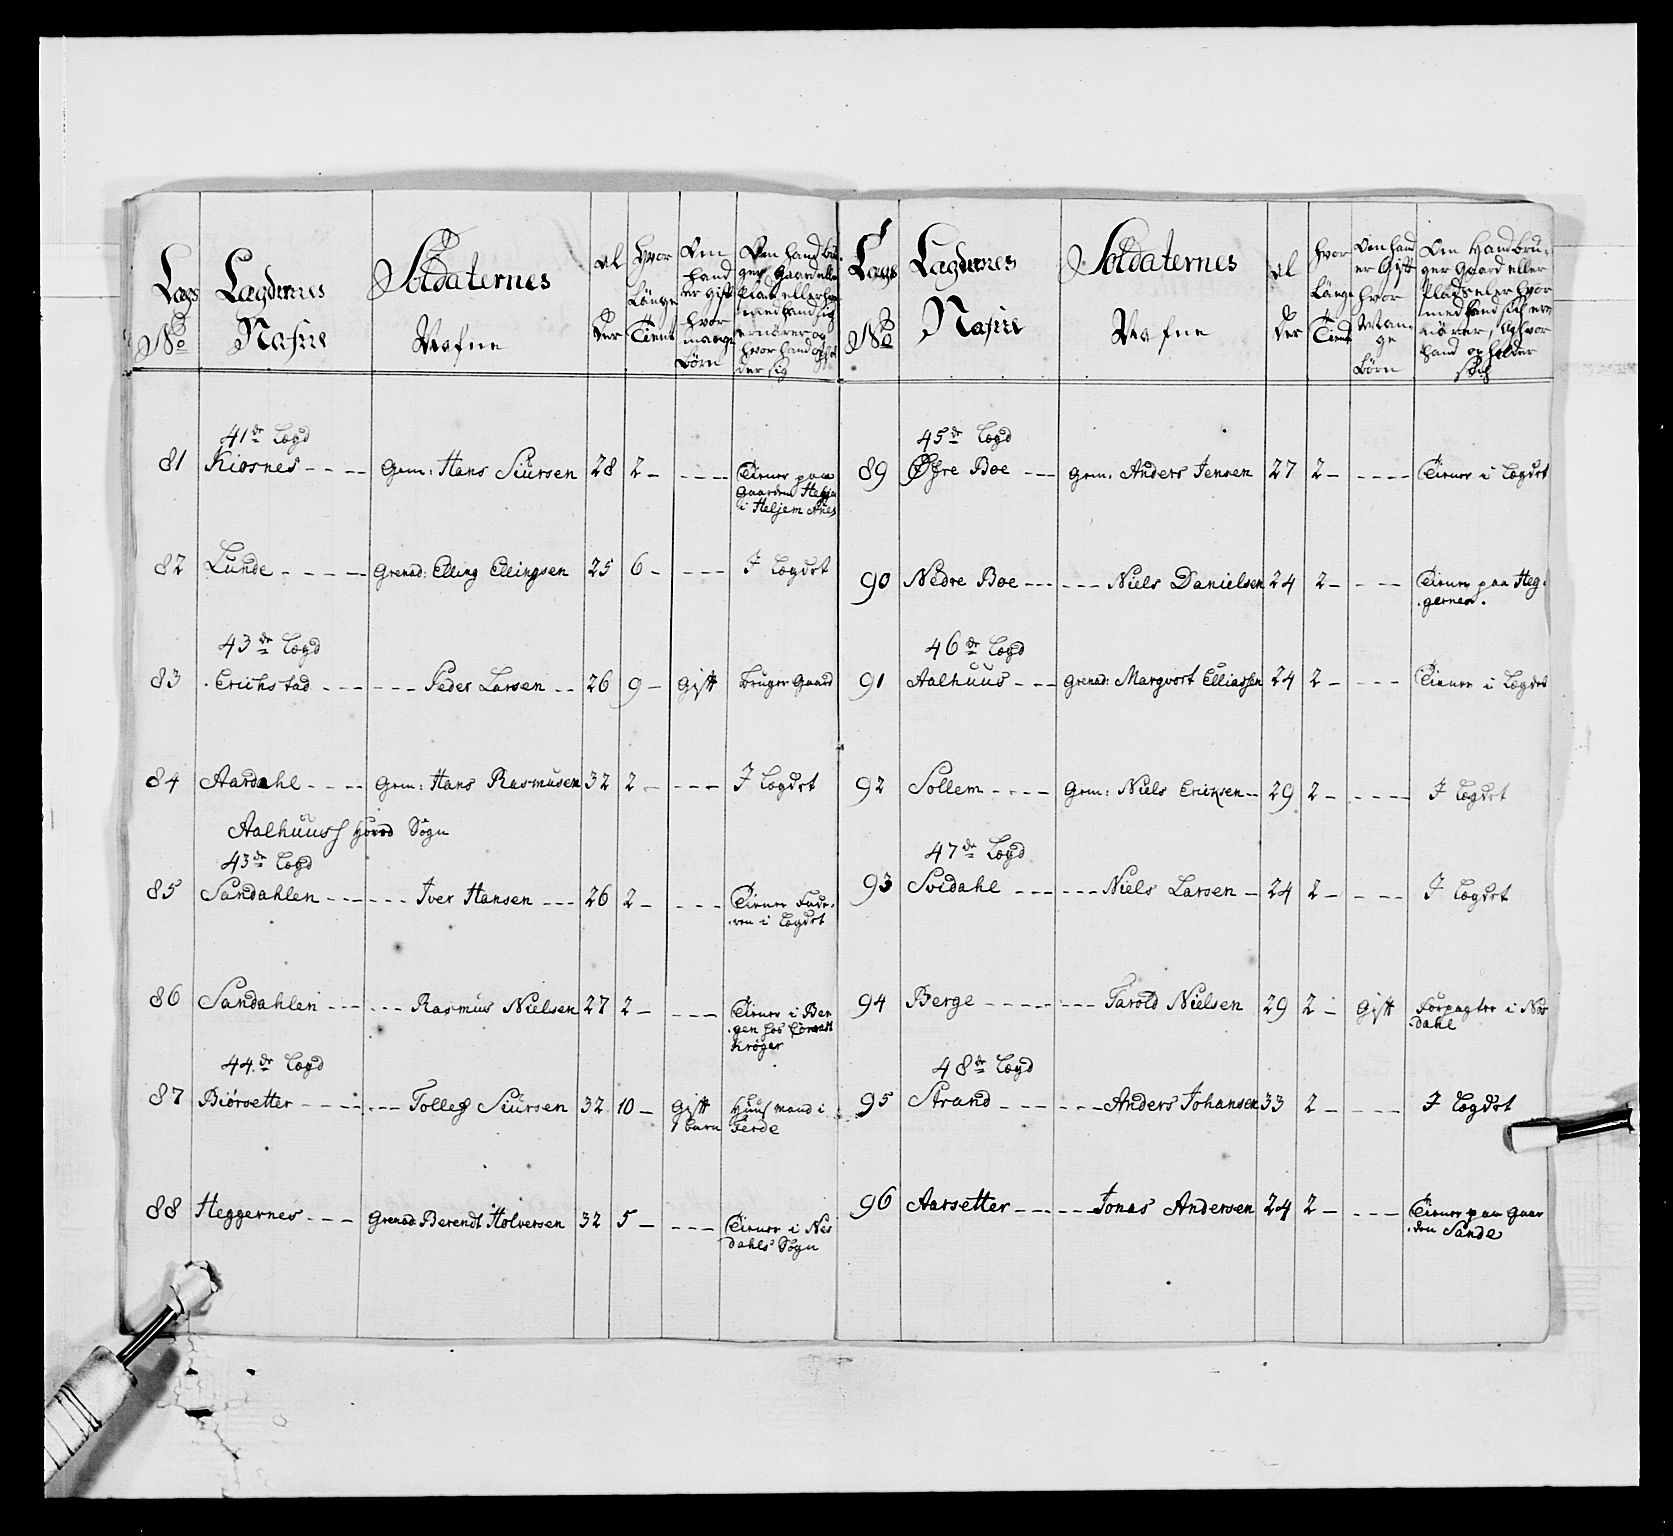 Lægs No
Lægdernes Nafne
Soldaternes Nafne
Al der
Hvor Længe Tient
Om hand er Gift hvor mange Børn
Om hand bru ger Gaard eller Plads eller hvor med hand sig ernører og hvor hand ophol der sig
41de Lægd
81 Kiøsnes - - - - Gem: Hans Siursen 28 2 - - - - - Tiener paa
Gaarden
i
82 Lunde - - - - - Grenad: Elling Ellingsen 25 6 - - - - I Lægdet
43de Lægd
83 Erichstad - - - - - - Peder Larsen - - 26 9 - Gift bruger Gaard
84 Aardahl - - - - Gem: Hans Rasmusen 32 2 - - - - I Lægdet
Aalhuus Hoved Sogn
43de Lægd
85 Sandahlen - - - - - - Iver Hansen - - - 26 2 - - - - Tiener Fade-
ren i Lægdet
86 Sandahlen - - - - - - Rasmus Nielsen 27 2 - - - - Tiener i Ber
gen hos
Krøger
44de Lægd
87 Biørsetter - - - - - - - Tollef Siursen 32 10 - Gift Huusmand i
1 barn Ferde
88 Heggernes - - - Grenad: Berendt Holversen 32 5 - - - - Tiener i Nes
dahls Sogn
Lægs No
Lægdernes Nafne
Soldaternes Nafne
Al der
Hvor Længe Tient
Om hand er Gift hvor Man- ge Børn
Om Hand bru- ger Gaard eller Plads eler hvor med hand sich ern nører, og hvor hand op holder sich
45de Lægd
89 Øfre Boe - - - Gem: Anders Jensen 27 2 - - - - - Tiener i Lægdet
90 Nedre Boe - - - - - - Niels Danielsen 24 2 - - - - Tiener paa Heg-
gernes.
46de Lægd
91 Aalhuus - - - Grenad: Margvort Elliassen 24 2 - - - - Tiener i Lægdet
92 Sollem - - - - Gem: Niels Ericksen - - 29 2 - - - - - I Lægdet
47de Lægd
93 Svidahl - - - - - - Niels Larsen - 24 2 - - - - I Lægdet
94 Berge - - - - - - - - Tarold Nielsen 29 2 - Gift Forpagter i Nes
dahl
48de Lægd
95 Strand - - - - - - - Anders Johansen 33 2 - - - - I Lægdet
96 Aarsetter - - - - - - Jonas Andersen 24 2 - - - - Tiener paa Gaar
den Sande